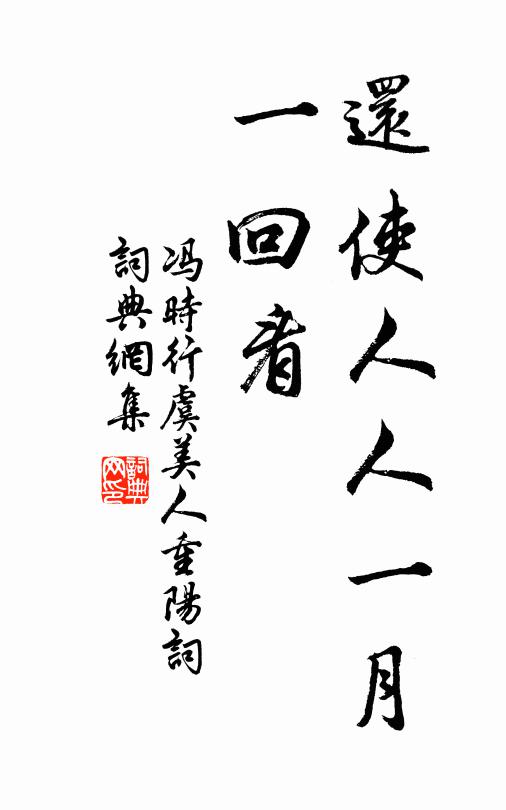 還使人人一月
一回看
冯時行虞美人重陽詞
詞典網集
詞典
网印